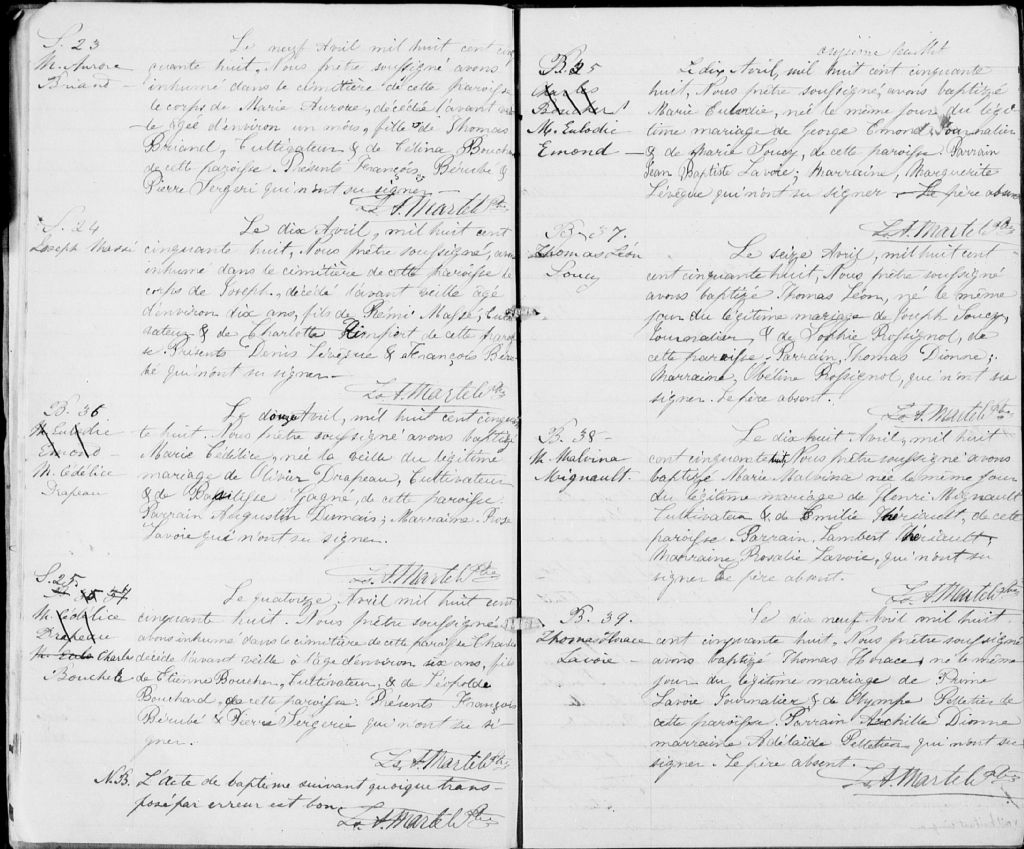 S. 23
M. Aurore
Briand —
Le neuf Avril mil huit cent cin
quante huit, Nous prêtre soussigné avons
inhumé dans le cimitière de cette paroisse
le corps de Marie Aurore, décédée l'avant veil
le âgé d'environ un mois, fille de Thomas
Briand, Cultivateur & de Célina Bouche
de cette paroisse. Présents François Bérubé &
Pierre Sergeri qui n'ont su signer —
Ls A. Martel Ptre
S. 24
Joseph Massé
Le dix Avril, mil huit cent
cinquante huit, Nous prêtre soussigné, avo
inhumé dans le cimitière de cette paroisse le
corps de Joseph, décédé l'avant veille âgé
d'environ dix ans, fils de Rémi Masse, Culti
vateur & de Charlotte Rimfort de cette paroi
se. Présents Denis Lévêque & François Béru
bé qui n'ont su signer —
Ls A. Martel Ptre
B. 36
M. Eulodie
Emond —
M. Cédélice
Drapeau
Le douze Avril, mil huit cent cinquan
te huit. Nous prêtre soussigné avons baptizé
Marie Cédélice, née la veille du légitime
mariage de Olivier Drapeau, Cultivateur
& de Basilisse Gagné, de cette paroisse.
Parrain Augustin Dumais; Marraine Rose
Lavoie qui n'ont su signer.
Ls. A. Martel Ptre
S. 25.
M. Cédélice
Drapeau
Charles
Bouchele
Le quatorze, Avril mil huit cent
cinquante huit. Nous prêtre soussigné
avons inhumé dans le cimitière de cette paroisse Charles
décédé l'avant veille à l'âge d'environ six ans, fils
de Etienne Boucher, Cultivateur, & de Léopolde
Bouchard, de cette paroisse. Présents François
Bérubé & Pierre Sergerie qui n'ont su si-
gner.
Ls. A. Martel Ptre
N.B. L'acte de baptême suivant quoique trans-
posé par erreur est bon
Ls A. Martel Ptre
onzième feuillet
B. 35
Charles
Boucher
M. Eulodie
Emond —
Le dix Avril, mil huit cent cinquante
huit, Nous prêtre soussigné, avons baptizé
Marie Eulodie, née le même jour du légi
time mariage de George Emond, Journalier
& de Marie Soucy, de cette paroisse. Parrain
Jean Baptiste Lavoie; Marraine, Marguerite
Lévêque qui n'ont su signer — Le père absen
Ls. A. Martel Ptre
B. 37.
Thomas Léon
Soucy
Le seize Avril, mil huit cent
cent cinquante huit, Nous prêtre soussigné
avons baptizé Thomas Léon, né le même
jour du légitime mariage de Joseph Soucy,
Journalier & de Sophie Rossignol, de
cette paroisse. Parrain, Thomas Dionne;
Marraine, Obéline Rossignol, qui n'ont su
signer. Le père absent.
Ls A. Martel Ptre
B. 38 —
M. Malvina
Mignault.
Le dix huit Avril, mil huit
cent cinquante huit, Nous prêtre soussigné avons
baptizé Marie Malvina née le même jour
du légitime mariage de Henri Mignault
Cultivateur & de Emilie Thériault, de cette
paroisse. Parrain, Lambert Thériault;
Marraine Rosalie Lavoie, qui n'ont su
signer Le père absent.
Ls. A. Martel Ptre
B. 39.
Thomas Horace
Lavoie —
Le dix neuf Avril mil huit
cent cinquante huit. Nous prêtre soussigné
avons baptizé Thomas Horace, né le même
jour du légitime mariage de Prime
Lavoie Journalier & de Olympe Pelletier de
cette paroisse. Parrain Achille Dionne
marraine Adélaïde Pelletier qui n'ont su
signer. Le père absent.
Ls A. Martel Ptre